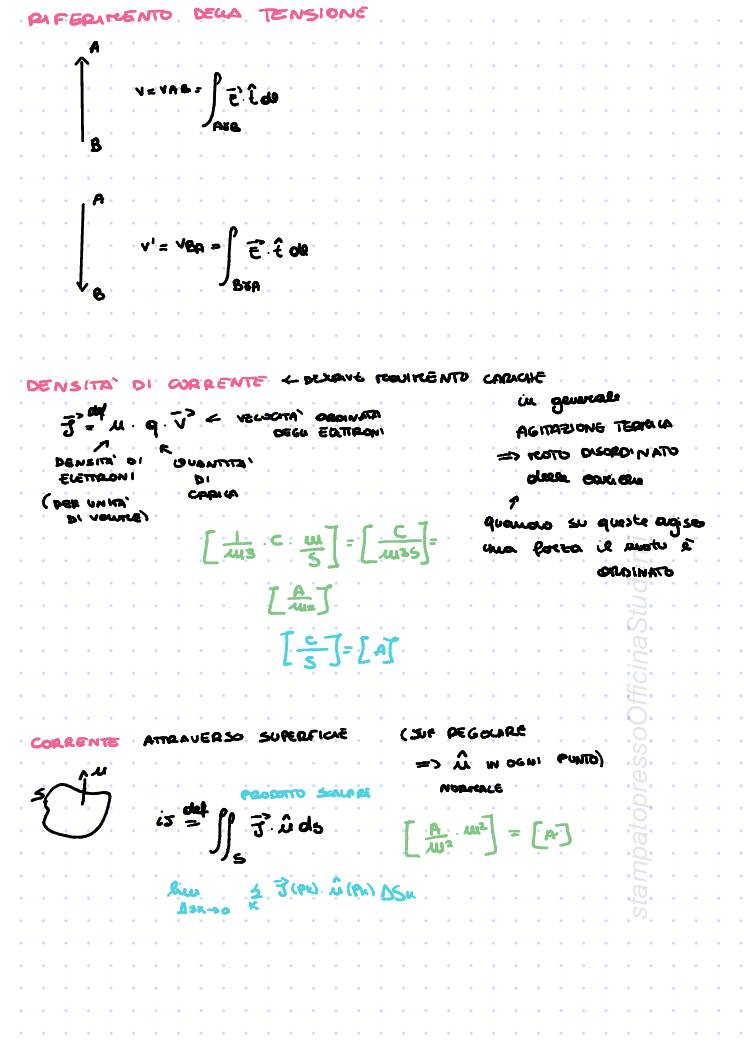 RIFERIMENTO DELLA TENSIONE
A
V = VAB = ∫AγB E⃗ · t̂ dl
B
A
V' = VBA = ∫BγA E⃗ · t̂ dl
B
DENSITA' DI CORRENTE ← DESCRIVE MOVIMENTO CARICHE
J⃗ =def n · q · v⃗ ← VELOCITA' ORDINATA
DEGLI ELETTRONI
DENSITA' DI
ELETTRONI
(PER UNITA'
DI VOLUME)
QUANTITA'
DI
CARICA
in generale
AGITAZIONE TERMICA
=> MOTO DISORDINATO
delle cariche
quando su queste agisce
una forza il moto è
ORDINATO
[1/m3 · C · m/s] = [C/m2s] =
[A/m2]
[C/s] = [A]
CORRENTE ATTRAVERSO SUPERFICIE
(SUP REGOLARE
=> n̂ IN OGNI PUNTO)
NORMALE
S n̂
PRODOTTO SCALARE
is =def ∬S J⃗ · n̂ ds
[A/m² · m²] = [A]
lim ΔSk→0 Σk J⃗(Pk) · n̂(Pk) ΔSk
stampatopressoOfficinaStudenti